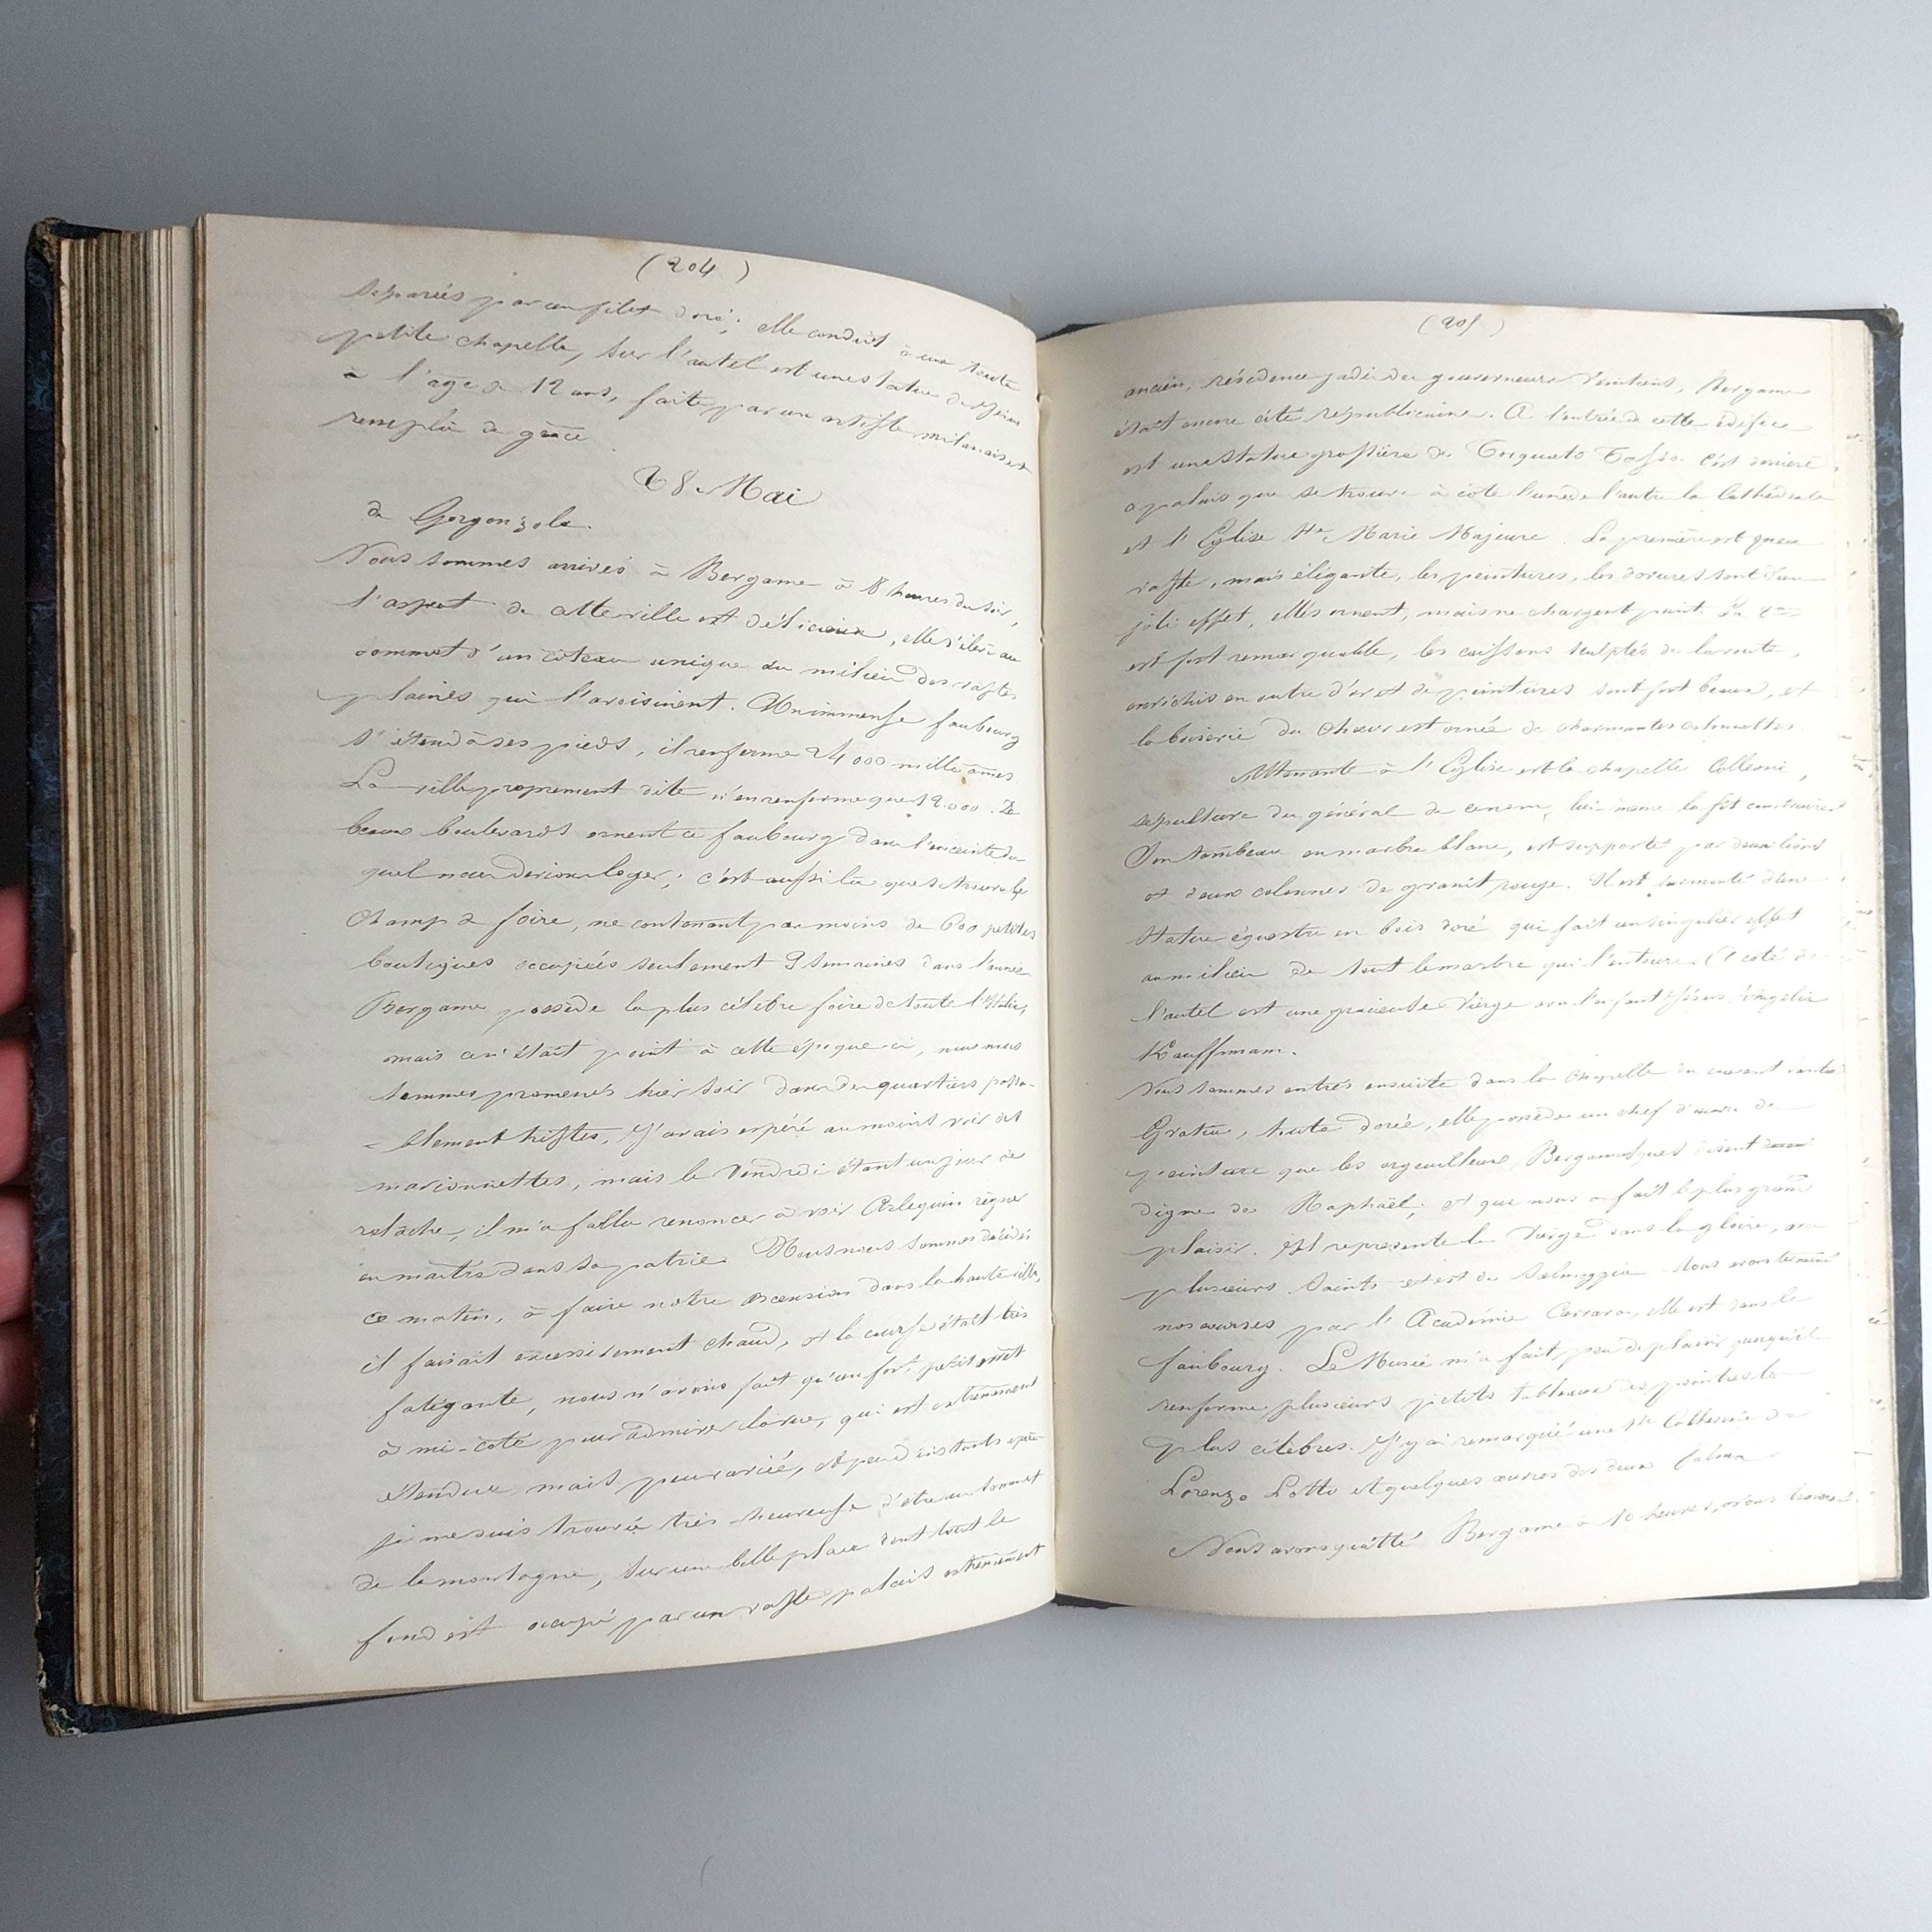 (204)
séparées par un filet doré; elle conduit à une toute
petite chapelle, sur l'autel est une statue de Jésus
à l'âge de 12 ans, faite par un artiste milanais et
remplie de grâce
28 Mai
de Gorgonzola.
Nous sommes arrivés à Bergame à 8 heures du soir,
l'aspect de cette ville est délicieux, elle s'élève au
sommet d'un côteau unique au milieu des vastes
plaines qui l'avoisinent. Un immense faubourg
s'étend à ses pieds, il renferme 24000 mille âmes.
La ville proprement dite n'en renferme que 12.000. De
beaux boulevards ornent ce faubourg dans l'enceinte du
quel nous devions loger; c'est aussi là que se trouve le
Champ de foire, ne contenant pas moins de 600 petites
boutiques occupées seulement 3 semaines dans l'année
Bergame possède la plus célèbre foire de toute l'Italie,
mais ce n'était point à cette époque-ci, nous nous
sommes promenés hier soir dans des quartiers passa-
-blement tristes, j'avais espéré au moins voir des
marionnettes, mais le Vendredi étant un jour de
relâche, il m'a fallu renoncer à voir Arlequin régner
en maître dans sa patrie. Nous nous sommes décidés
ce matin, à faire notre ascension dans la haute ville,
il faisait excessivement chaud, et la course était très
fatigante, nous n'avons fait qu'un fort petit arrêt
à mi-côte pour admirer la vue, qui est extrêmement
étendue mais peu variée, et peu d'instants après
je me suis trouvée très heureuse d'être au sommet
de la montagne, sur une belle place dont tout le
fond est occupé par un vaste palais extrêmement
(205)
ancien, résidence jadis des gouverneurs Vénitiens, Bergame
était encore cité républicaine. A l'entrée de cette édifice
est une statue grossière de Torquato Tasso. C'est derrière
ce palais que se trouve à côté l'une de l'autre la Cathédrale
et l'Eglise Ste Marie Majeure. La première est peu
vaste, mais élégante, les peintures, les dorures sont d'un
joli effet, elles ornent, mais ne chargent point. La 2me
est fort remarquable, les caissons sculptés de la voute,
enrichis en outre d'or et de peintures sont fort beaux, et
la boiserie du Chœur est ornée de charmantes colonnettes.
Attenante à l'Eglise est la chapelle Colleoni,
sepulture du général de ce nom, lui même la fit construire.
Son tombeau en marbre blanc, est supporté par deux lions
et deux colonnes de granit rouge. Il est surmonté d'une
statue équestre en bois doré qui fait un singulier effet
au milieu de tout le marbre qui l'entoure. A côté de
l'autel est une gracieuse Vierge avec l'enfant Jésus d'Angelica
Kauffmann.
Nous sommes entrés ensuite dans la Chapelle du couvent
Grata, toute dorée, elle possède un chef d'œuvre de
peinture que les orgueilleux Bergamasques disent
digne de Raphaël, et que nous a fait le plus grand
plaisir. Il représente la Vierge dans la gloire, avec
plusieurs Saints et est de Salmeggia. Nous avons terminé
nos courses par l'Académie Carrara, elle est dans le
faubourg. Le Musée m'a fait peu de plaisir quoiqu'il
renferme plusieurs petits tableaux des peintres les
plus célèbres. J'y ai remarqué une Ste Catherine de
Lorenzo Lotto et quelques œuvres des deux Palma
Nous avons quitté Bergame à 10 heures, nous